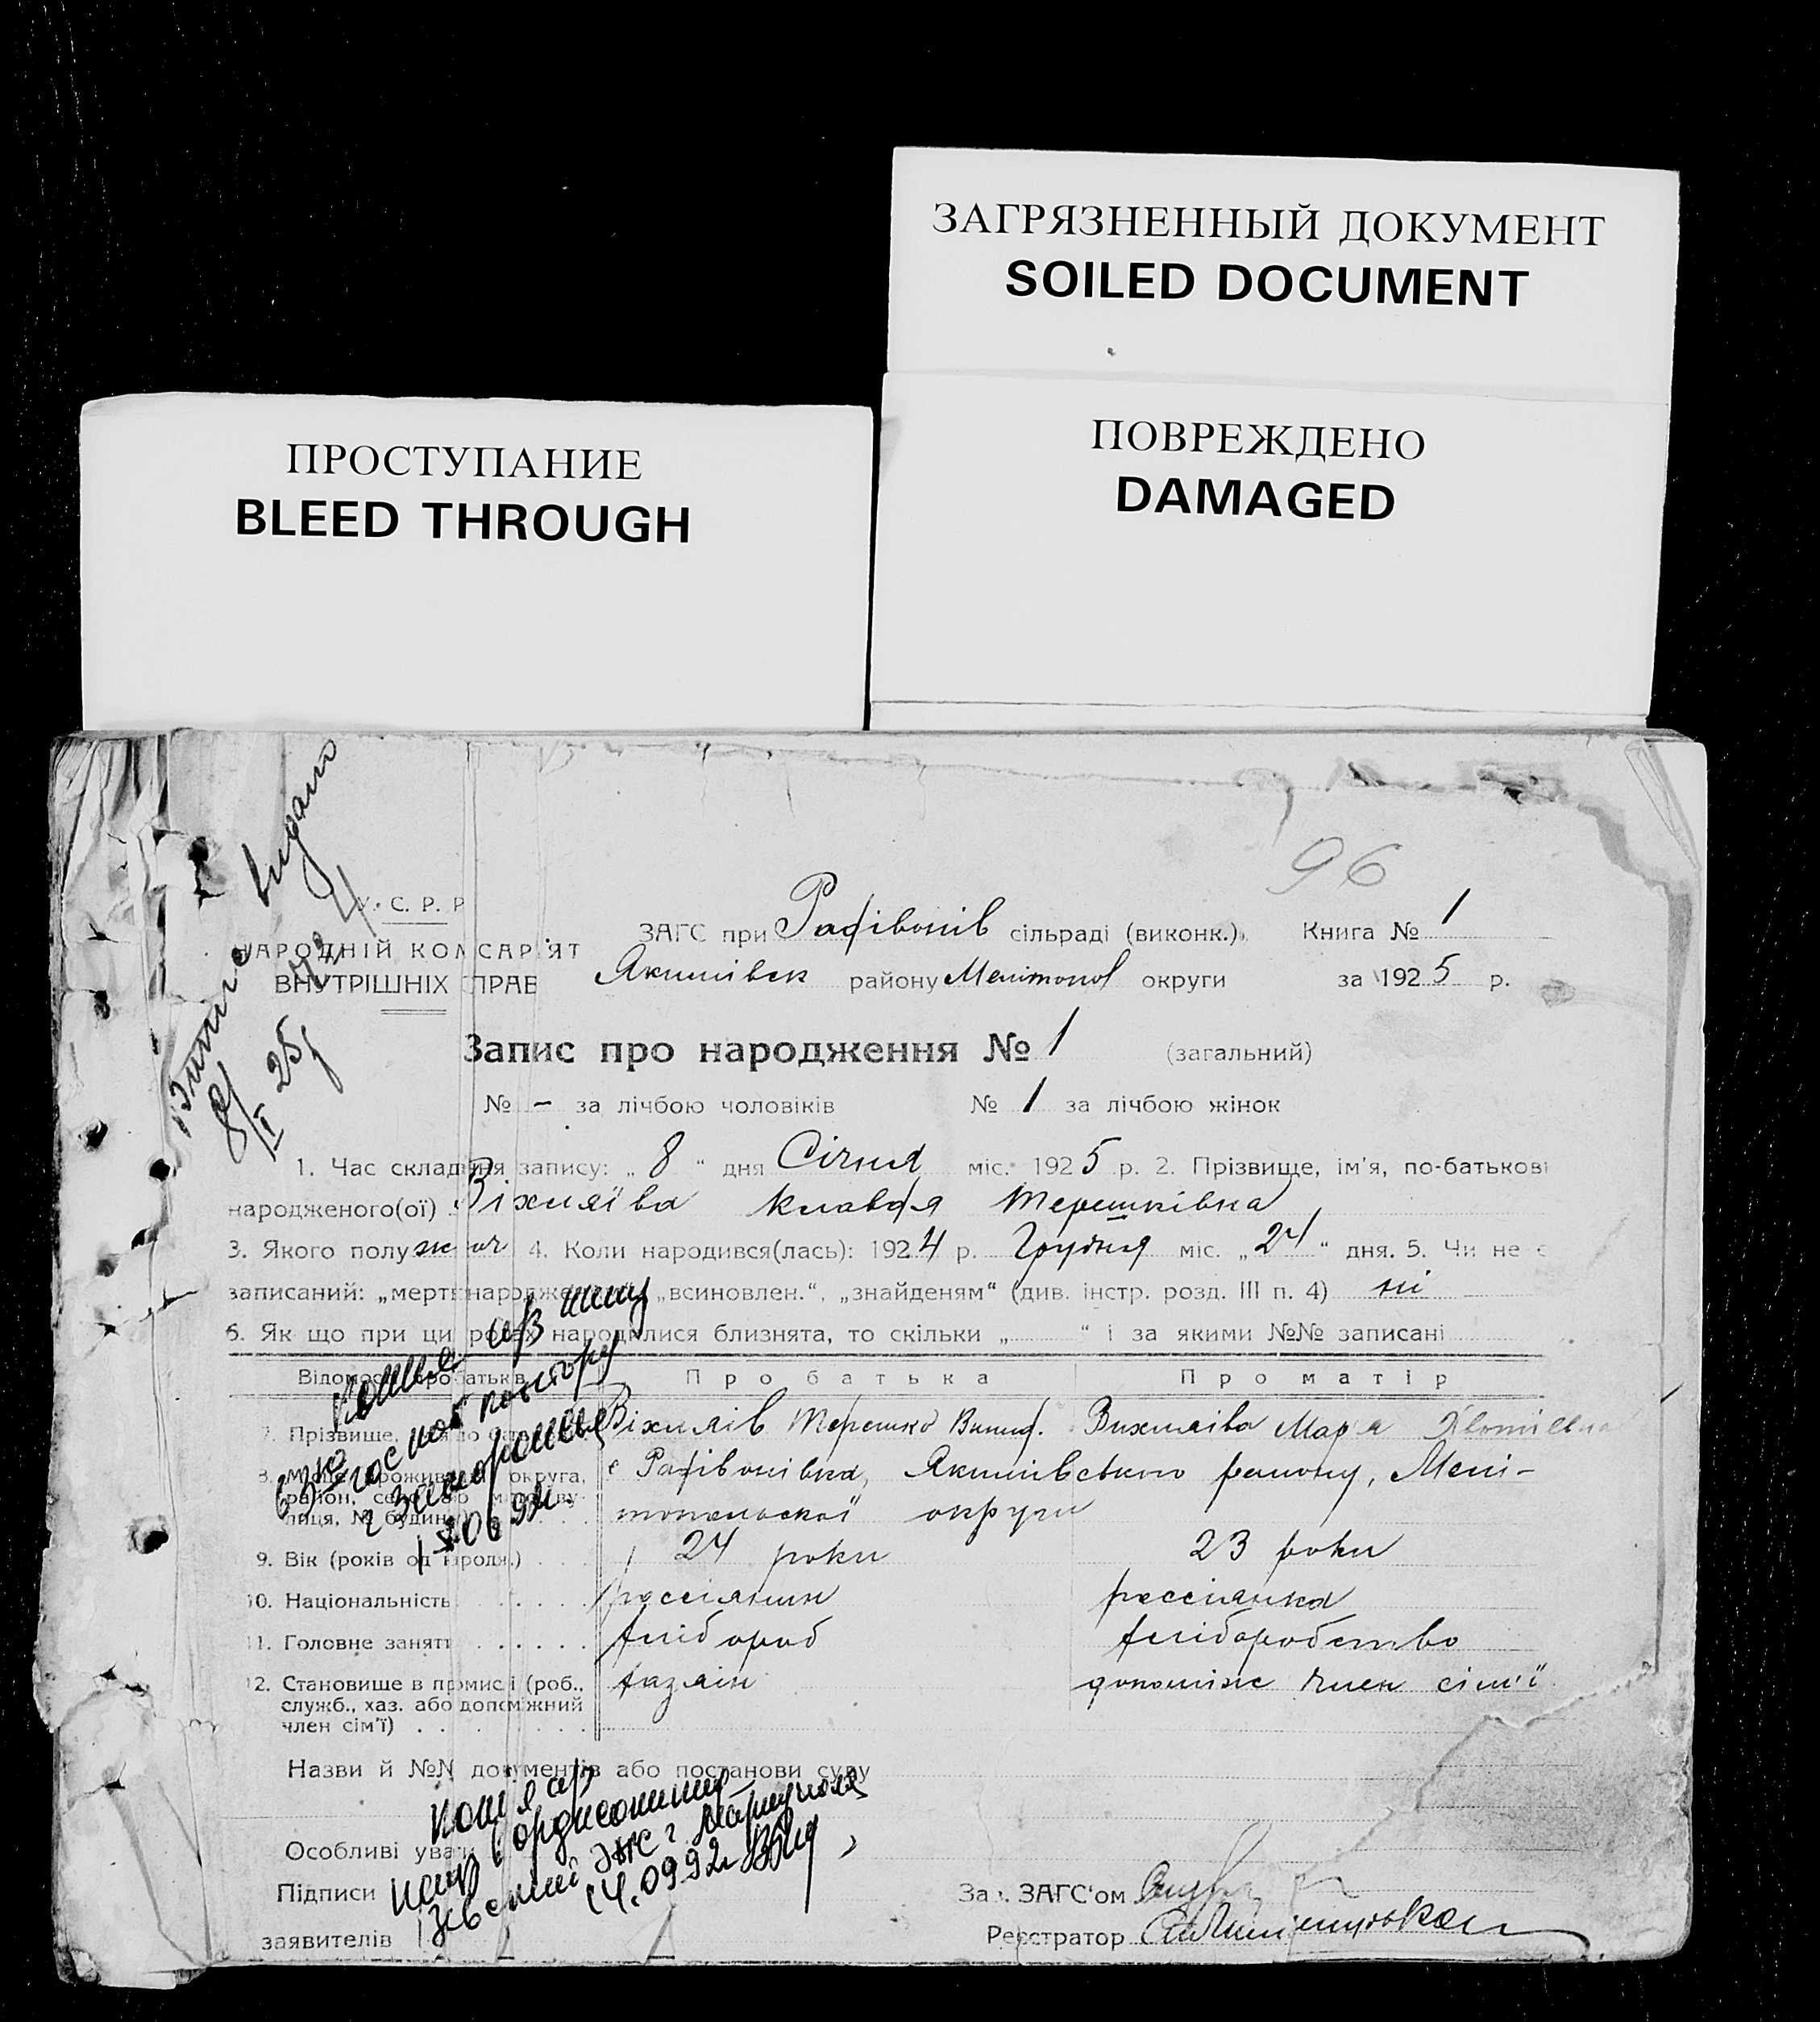 ЗАГРЯЗНЕННЫЙ ДОКУМЕНТ
SOILED DOCUMENT
ПРОСТУПАНИЕ
BLEED THROUGH
ПОВРЕЖДЕНО
DAMAGED
96
У. С. Р. Р.
НАРОДНІЙ КОМІСАРІЯТ
ВНУТРІШНІХ СПРАВ
видано
8/I 25р
ЗАГС при Радівонів сільраді (виконк.). Книга № 1
Якимівськ району Мелітопол округи за 1925 р.
Запис про народження № 1 (загальний)
№ – за лічбою чоловіків № 1 за лічбою жінок
1. Час складання запису: „ 8 “ дня Січня міс. 1925 р. 2. Прізвище, ім’я, по-батькові
народженого(ої) Віхляїва Клавдя Терешківна
3. Якого полу жіноч 4. Коли народився(лась): 1924 р. Грудня міс. „ 24 “ дня. 5. Чи не є
записаний: „мертвонароджений“, „всиновлен.“, „знайденям“ (див. інстр. розд. III п. 4) ні
6. Як що при ци родах народилися близнята, то скільки „ “ і за якими №№ записані
Відомості про батьків Про батька Про матір
7. Прізвище, Віхляїв Терешко Вихляїва Марія
8. Місце проживання округа, с Радівонівка, Якимівського району, Мелі-
район, село або місто ву-
лиця, № будинку топольської округи
9. Вік (років од народж.) 24 роки 23 роки
10. Національність россіянин россіянка
11. Головне заняття хлібороб хліборобство
12. Становище в промислі (роб., хазяїн допоміжс член сім'ї
служб., хаз. або допоміжний
член сім’ї)
Назви й №№ документів або постанови суду
Особливі уваги
Підписи
заявителів
г Мариуполя
14.09 92г
Зав. ЗАГС‘ом
Реєстратор